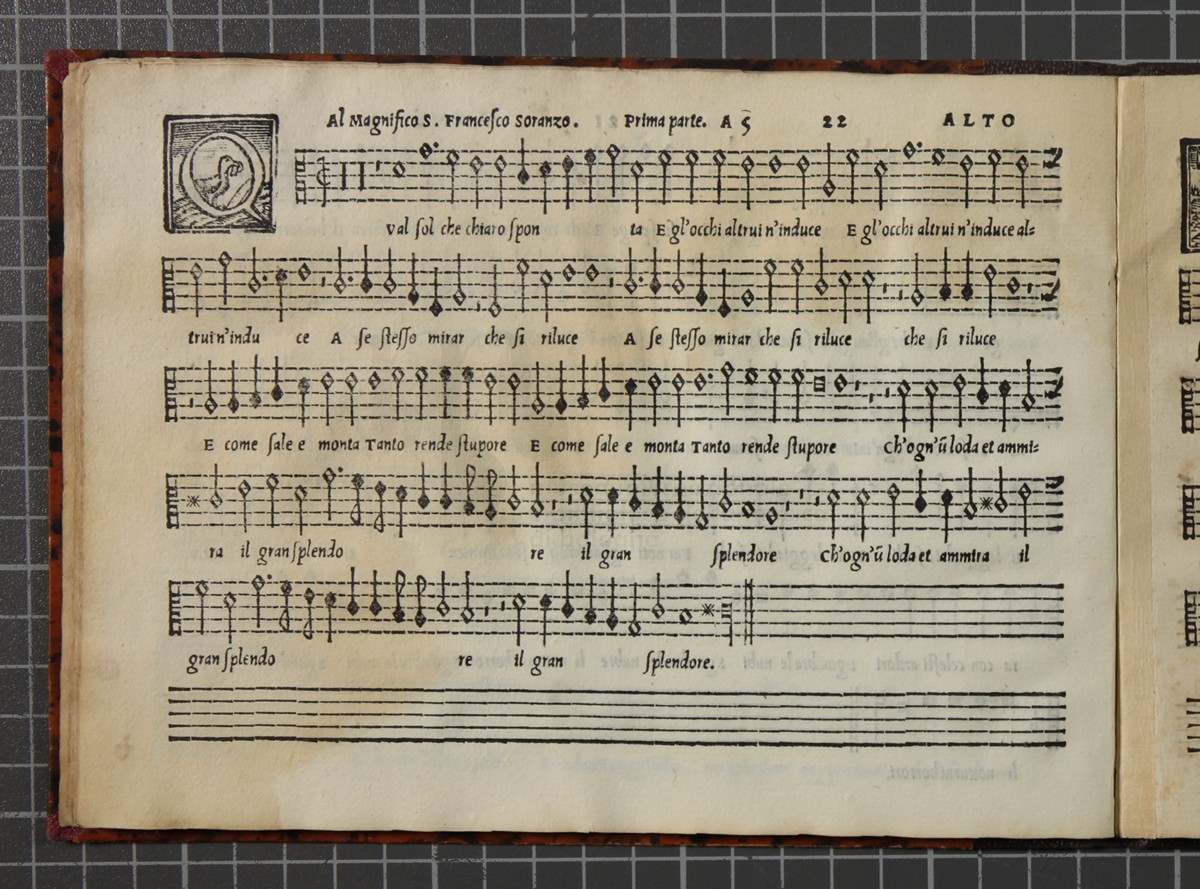 Al Magnifico S. Franceſco Soranzo. Prima parte. A 5 22 ALTO
Q
val ſol che chiaro ſpon ta E gl'occhi altrui n'induce E gl'occhi altrui n'induce al=
trui n'indu ce A ſe ſteſſo mirar che ſi riluce A ſe ſteſſo mirar che ſi riluce che ſi riluce
E come ſale e monta Tanto rende ſtupore E come ſale e monta Tanto rende ſtupore Ch'ogn'ũ loda et ammi=
ra il gran ſplendo re il gran ſplendore Ch'ogn'ũ loda et ammira il
gran ſplendo re il gran ſplendore.